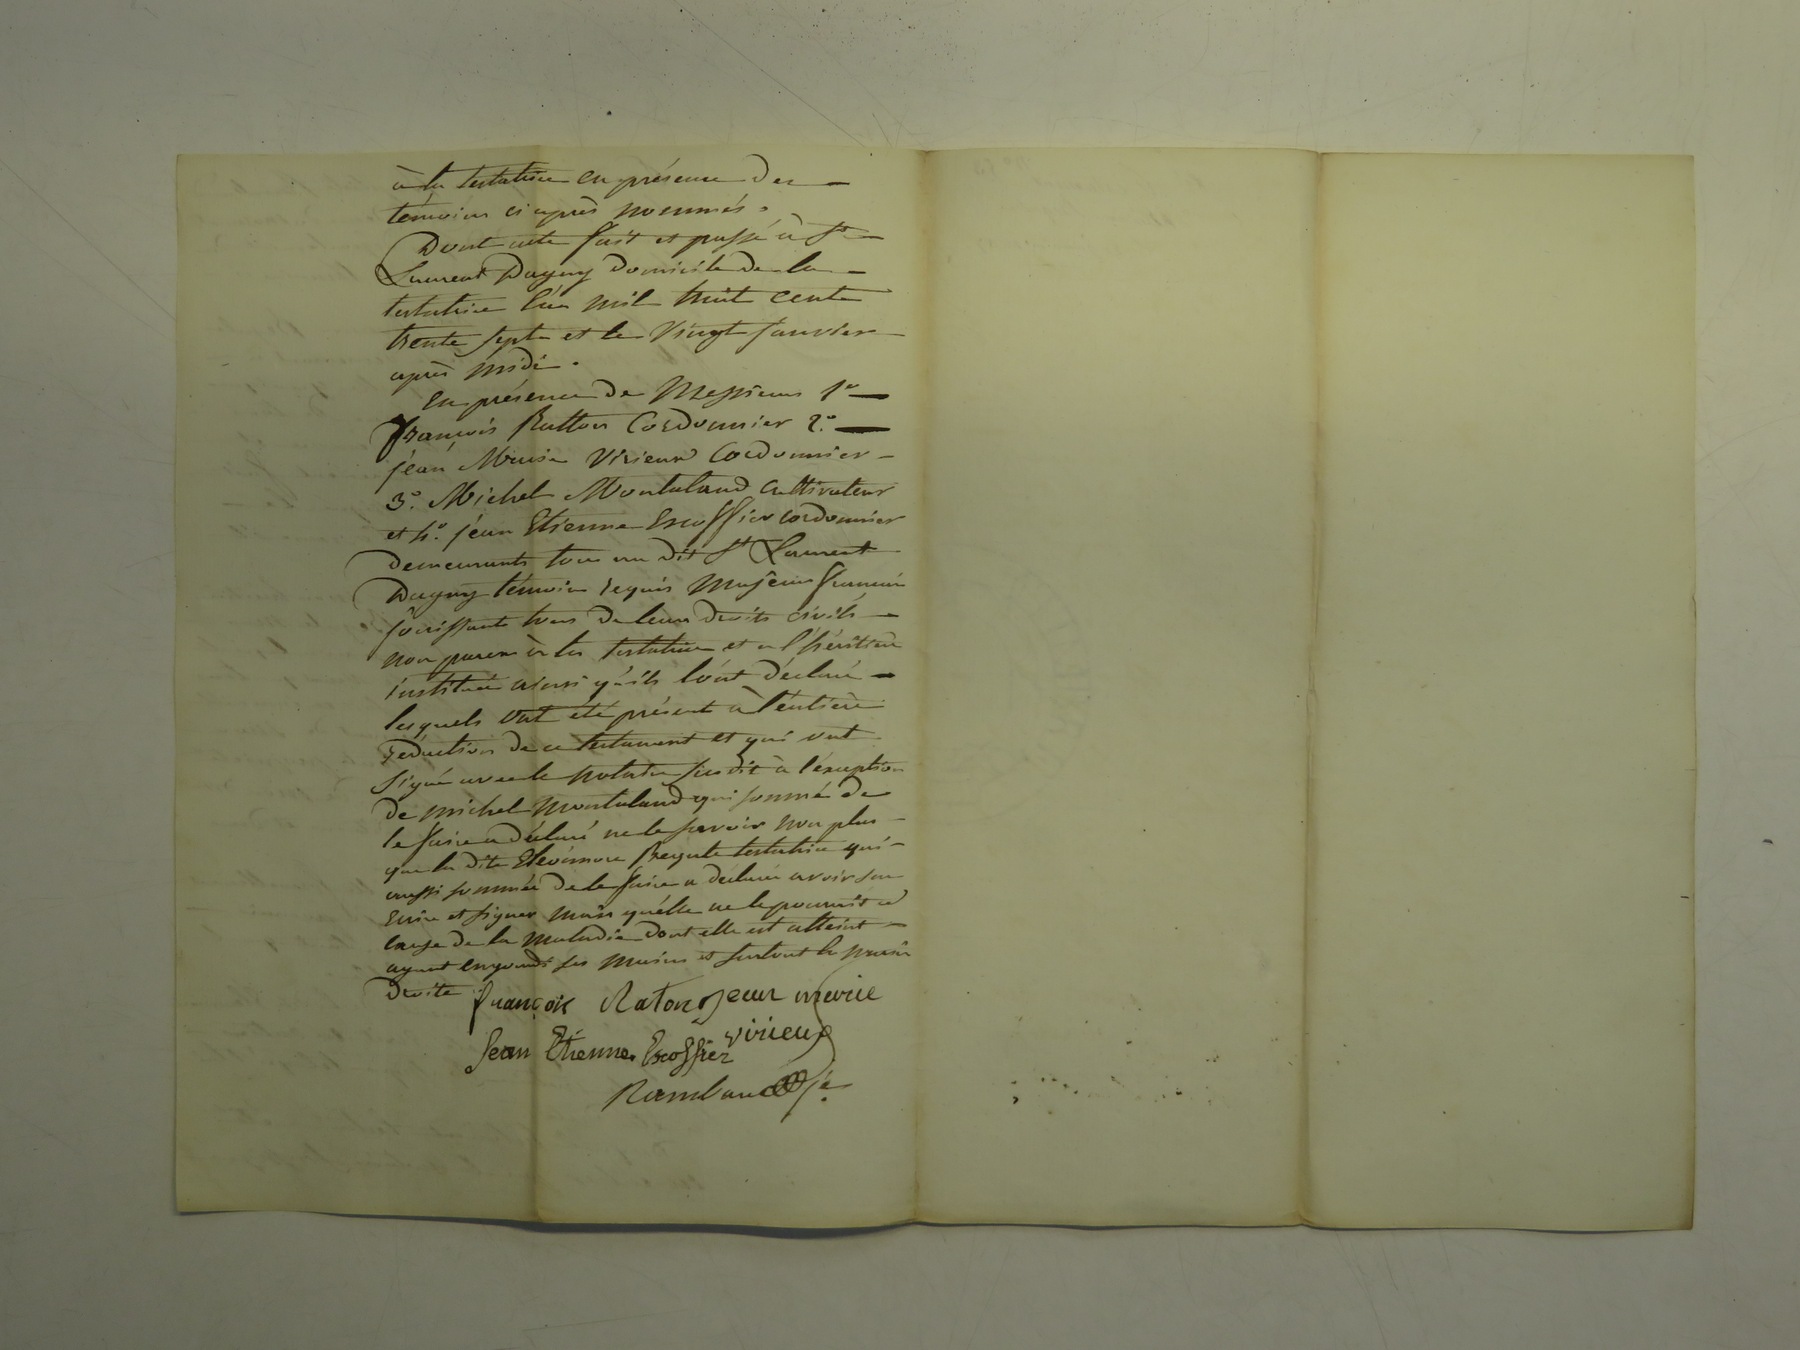 à la testatrice en présence des
témoins ci après nommés.
Dont acte fait et passé à St
Laurent Dagny domicile de la
testatrice l'an mil huit cent
trente sept et le vingt janvier
après midi.
En présence de Messieurs 1º
françois Ratton Cordonnier 2.º
jean Marie Virieux Cordonnier
3º. Michel Montaland cultivateur
et 4º. jean Etienne Escoffier cordonnier
demeurants tous au dit St Laurent
Dagny témoins requis Majeurs francais
jouissants tous de leurs droits civils
non parens à la testatrice et a l'héritière
instituée ainsi qu'ils l'ont déclaré
lesquels ont été présents à l'entière
rédaction de ce testament et qui ont
signé avec le notaire susdit à l'éxception
de michel Montaland qui sommé de
le faire a déclaré ne le savoir non plus
que la dite testatrice qui
aussi sommée de le faire a déclaré avoir su
écrire et signer mais qu'elle ne le pourrait à
cause de la maladie dont elle est atteint
ayant engourdi ses mains et surtout la main
droite
françois Raton jean marie
virieux
Jean Etienne Escoffier